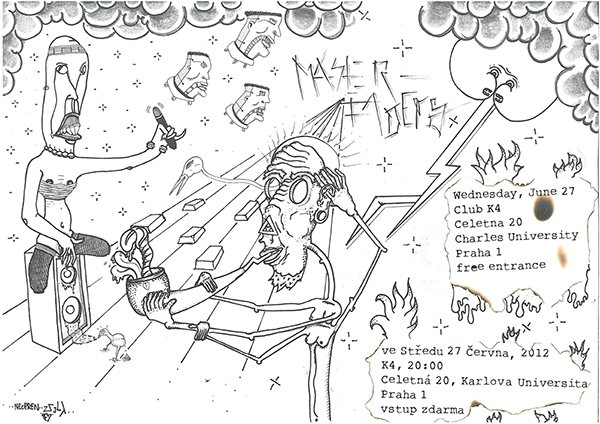 MASER
Wednesday, June 27
Club K4
Celetna 20
Charles University
Praha 1
free entrance
ve Středu 27 Června, 2012
K4, 20:00
Celetná 20, Karlova Universita
Praha 1
vstup zdarma